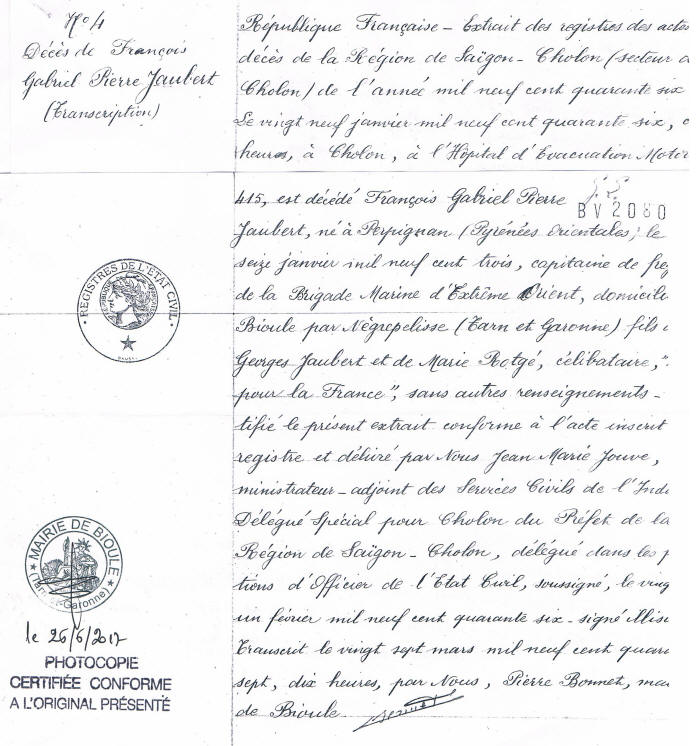 N° 4
Décès de François
Gabriel Pierre Jaubert
(Transcription)
République Française - Extrait des registres des actes
décès de la Région de Saïgon - Cholon (secteur
Cholon) de l'année mil neuf cent quarante six
Le vingt neuf janvier mil neuf cent quarante six,
heures, à Cholon, à l'Hôpital d'Evacuation Motor
415, est décédé François Gabriel Pierre
BV 2080
Jaubert, né à Perpignan (Pyrénées Orientales) le
seize janvier mil neuf cent trois, capitaine de freg
de la Brigade Marine d'Extrême Orient, domicili
Bioule par Nègrepelisse (Tarn et Garonne) fils
Georges Jaubert et de Marie Rotgé, célibataire, "
pour la France", sans autres renseignements -
tifié le présent extrait conforme à l'acte inscrit
registre et délivré par Nous Jean Marie Jouve,
ministrateur - adjoint des Services Civils de l'Ind
Délégué Spécial pour Cholon du Préfet de la
Région de Saïgon - Cholon, délégué dans les f
tions d'Officier de l'Etat Civil, soussigné, le ving
un février mil neuf cent quarante six - signé
Transcrit le vingt sept mars mil neuf cent quara
sept, dix heures, par Nous, Pierre Bonnet, mai
de Bioule
REGISTRES DE L'ETAT CIVIL
MAIRIE DE BIOULE
(Tarn-et-Garonne)
le 26/6/2017
PHOTOCOPIE
CERTIFIÉE CONFORME
A L'ORIGINAL PRÉSENTÉ